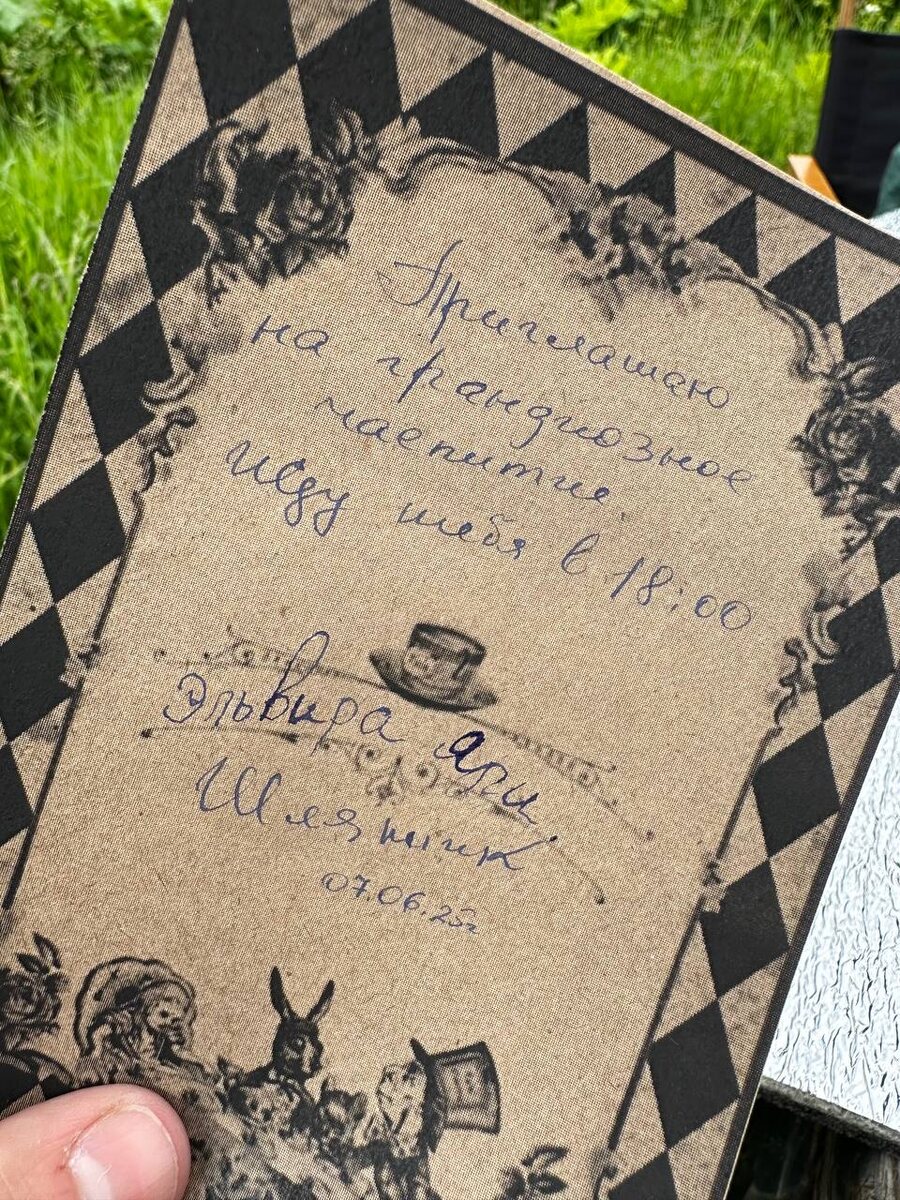 Приглашаю
на грандиозное
чаепитие.
Жду тебя в 18:00
Эльвира Ярц
Шляпник
07.06.25г